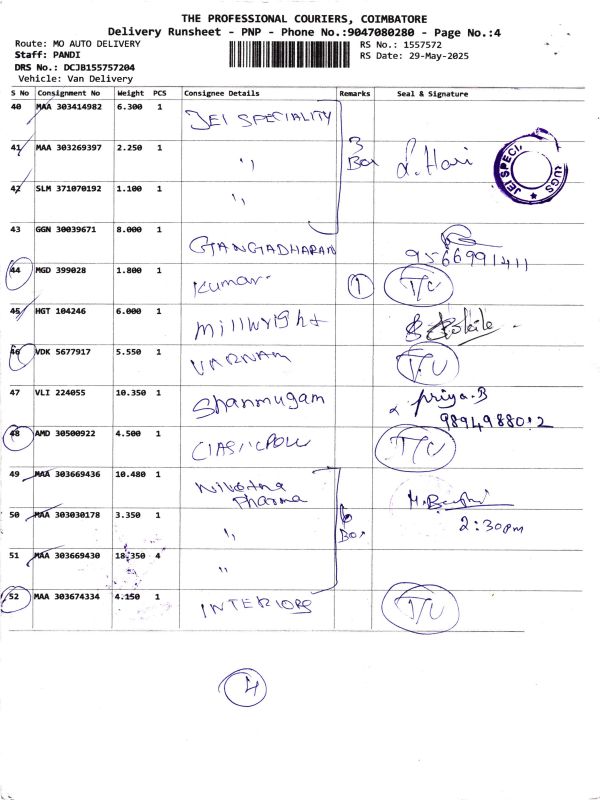 THE PROFESSIONAL COURIERS, COIMBATORE
Delivery Runsheet - PNP - Phone No.:9047080280 - Page No.:4
Route: MO AUTO DELIVERY
RS No.: 1557572
Staff: PANDI
RS Date: 29-May-2025
DRS No.: DCJB155757204
Vehicle: Van Delivery
S No Consignment No Weight PCS Consignee Details Remarks Seal & Signature
40 MAA 303414982 6.300 1 JEI SPECIALITY
41 MAA 303269397 2.250 1 ,, 3 Box L. Hari JEI SPECI
42 SLM 371070192 1.100 1 ,,
43 GGN 30039671 8.000 1 GANGADHARAN 9566991411
44 MGD 399028 1.800 1 Kumar 1
45 HGT 104246 6.000 1 Millwright
46 VDK 5677917 5.550 1 VARNAM
47 VLI 224055 10.350 1 Shanmugam Priya.B
48 AMD 30500922 4.500 1
49 MAA 303669436 10.480 1 Pharma
50 MAA 303030178 3.350 1 ,, 6 Box 2:30pm
51 MAA 303669430 18.350 4 ,,
52 MAA 303674334 4.150 1 INTERIORS
4